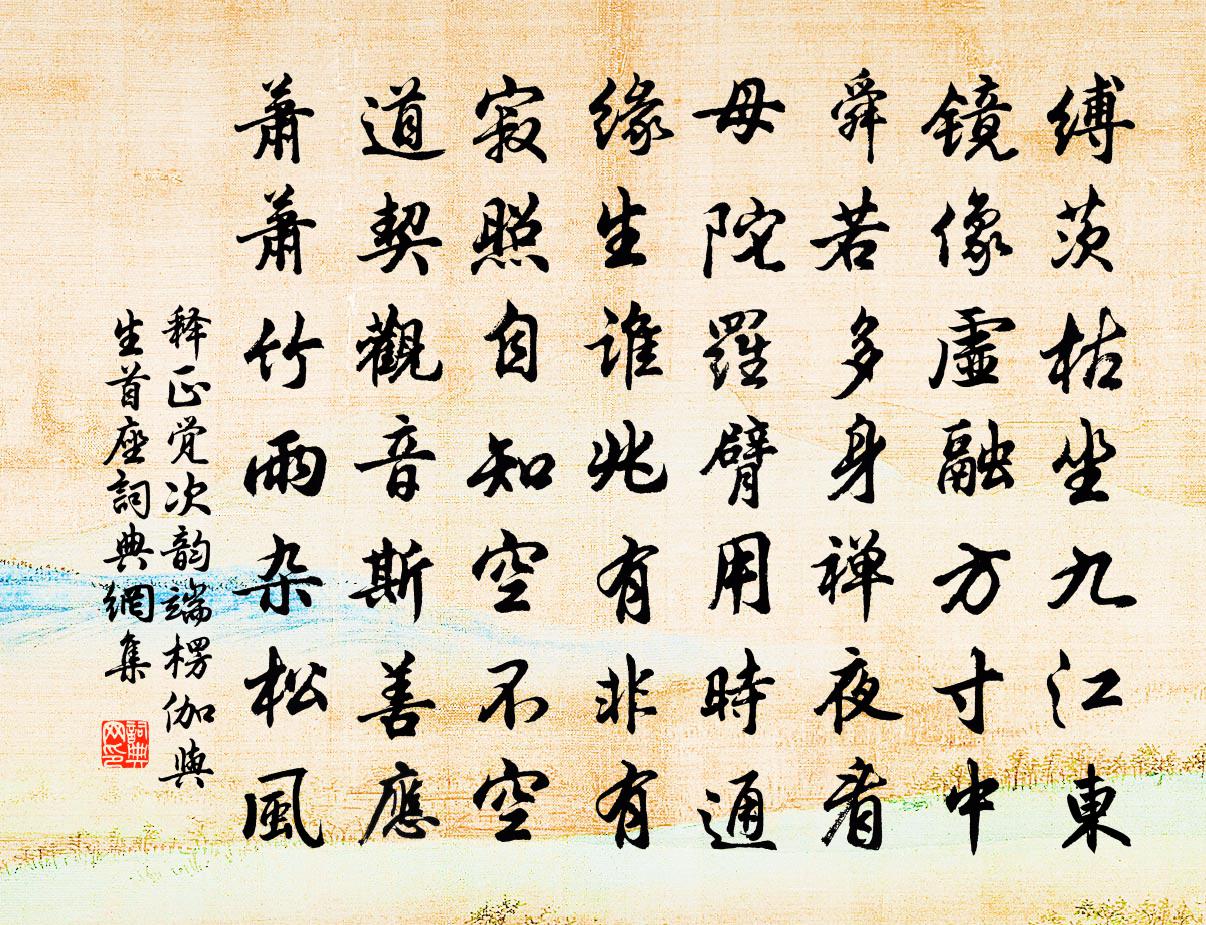 縛茨枯坐九江東
镜像虛融方寸中
舜若多身禅夜看
母陀羅臂用時通
緣生谁兆有非有
寂照自知空不空
道契觀音斯善應
萧萧竹雨杂松風
释正觉次韵端楞伽與
生首座詞典網集
詞典